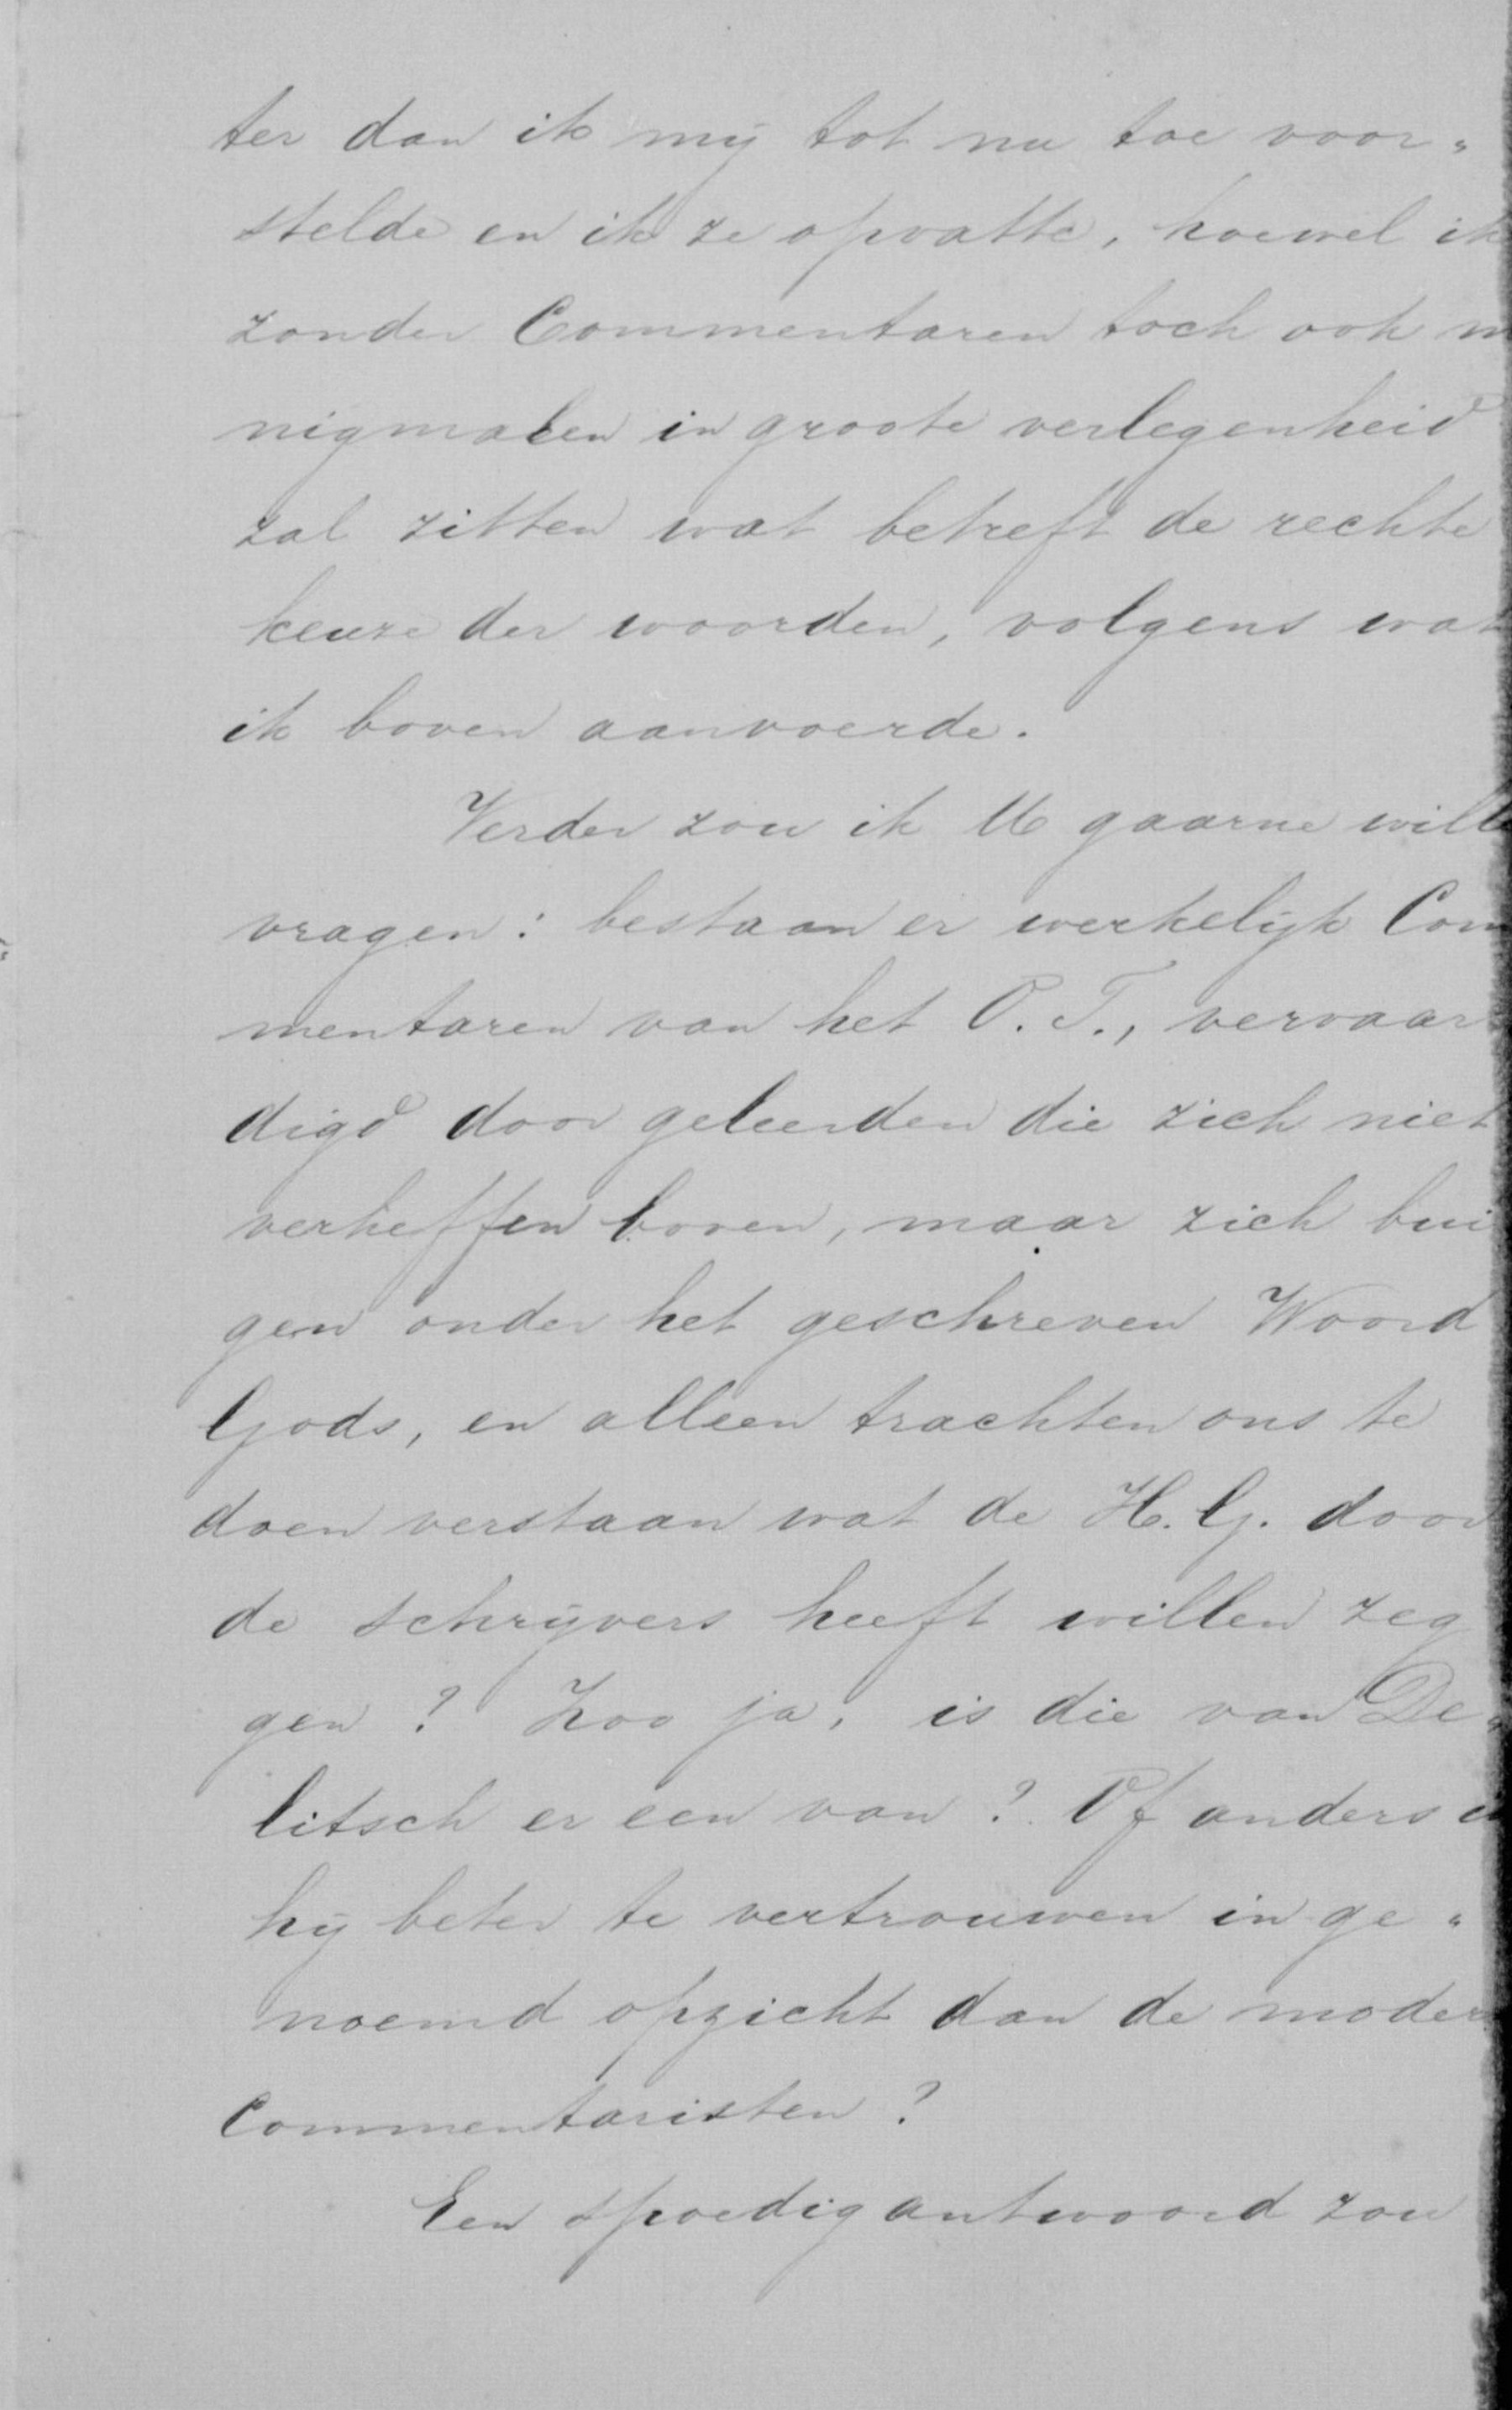 ter dan ik mij tot nu toe voor„
stelde en ik ze opvatte, hoewel ik
zonder Commentaren toch ook m
nigmalen in groote verlegenheid
zal zitten wat betreft de rechte
keuze der woorden, volgens wat
ik boven aanvoerde.
Verder zou ik U gaarne wille
vragen: bestaan er werkelijk Com
mentaren van het O.T., vervaar
digd door geleerden die zich niet
verheffen boven, maar zich bui
gen onder het geschreven Woord
Gods, en alleen trachten ons te
doen verstaan wat de H.G. door
de schrijvers heeft willen zeg
gen? Zoo ja, is die van De„
litsch er een van? Of anders is
hij beter te vertrouwen in ge„
noemd opzicht dan de moder
Commentaristen?
Een spoedig antwoord zou